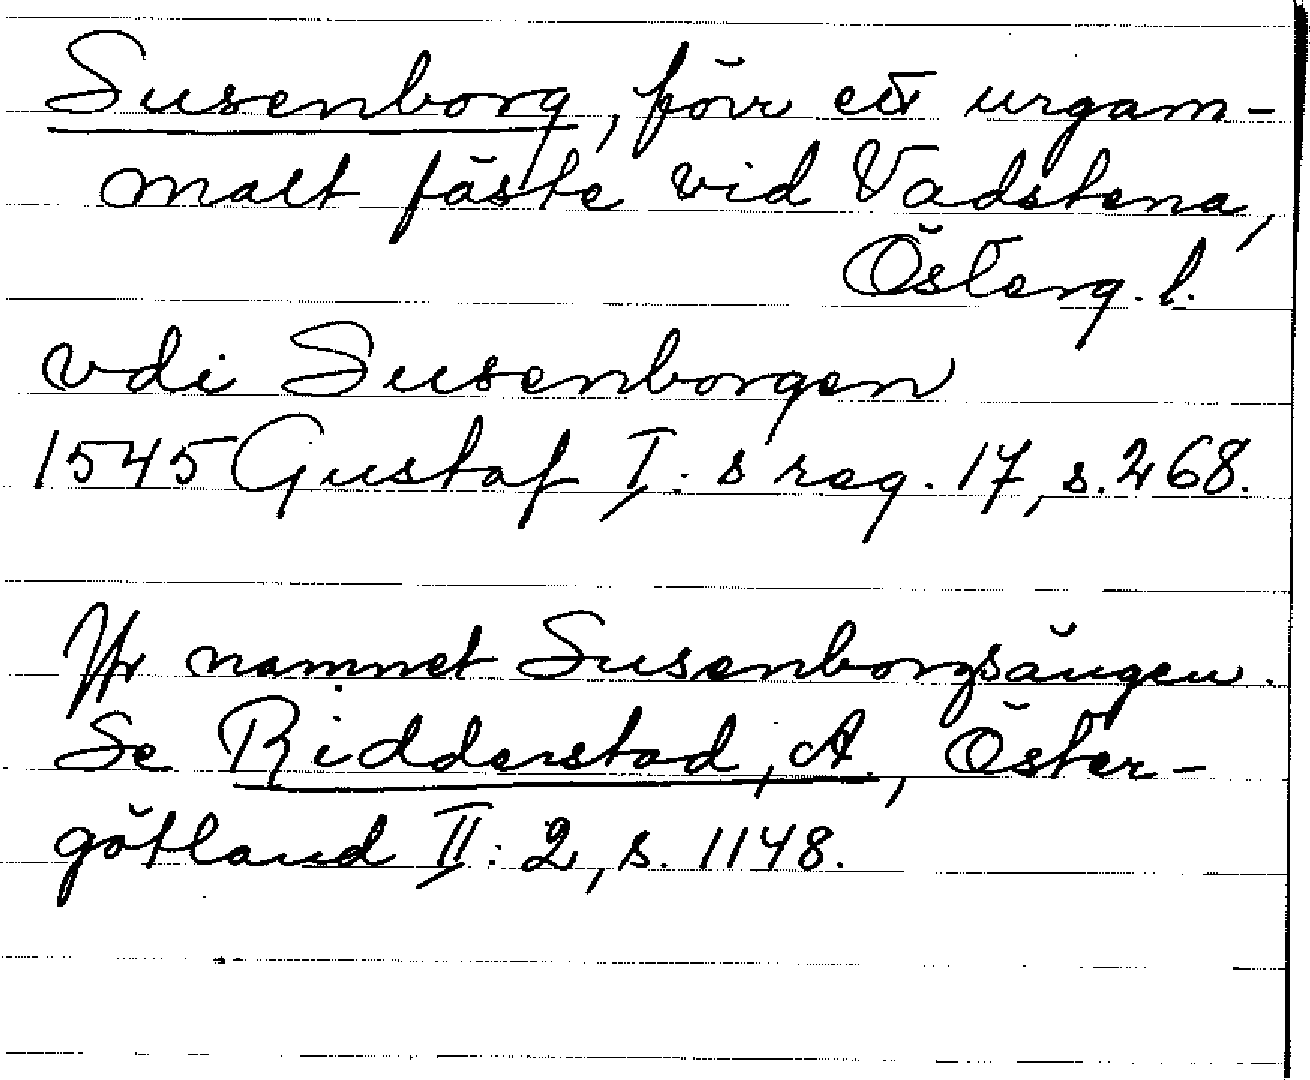 Susenborg, förr ett urgam-
malt fäste vid Vadstena,
Österg. l.
vdi Susenborgen
1545 Gustaf I:s reg. 17, s. 268.
Jfr namnet Susenborgsängen.
Se Ridderstad, A., Öster-
götland II:2, s. 1148.